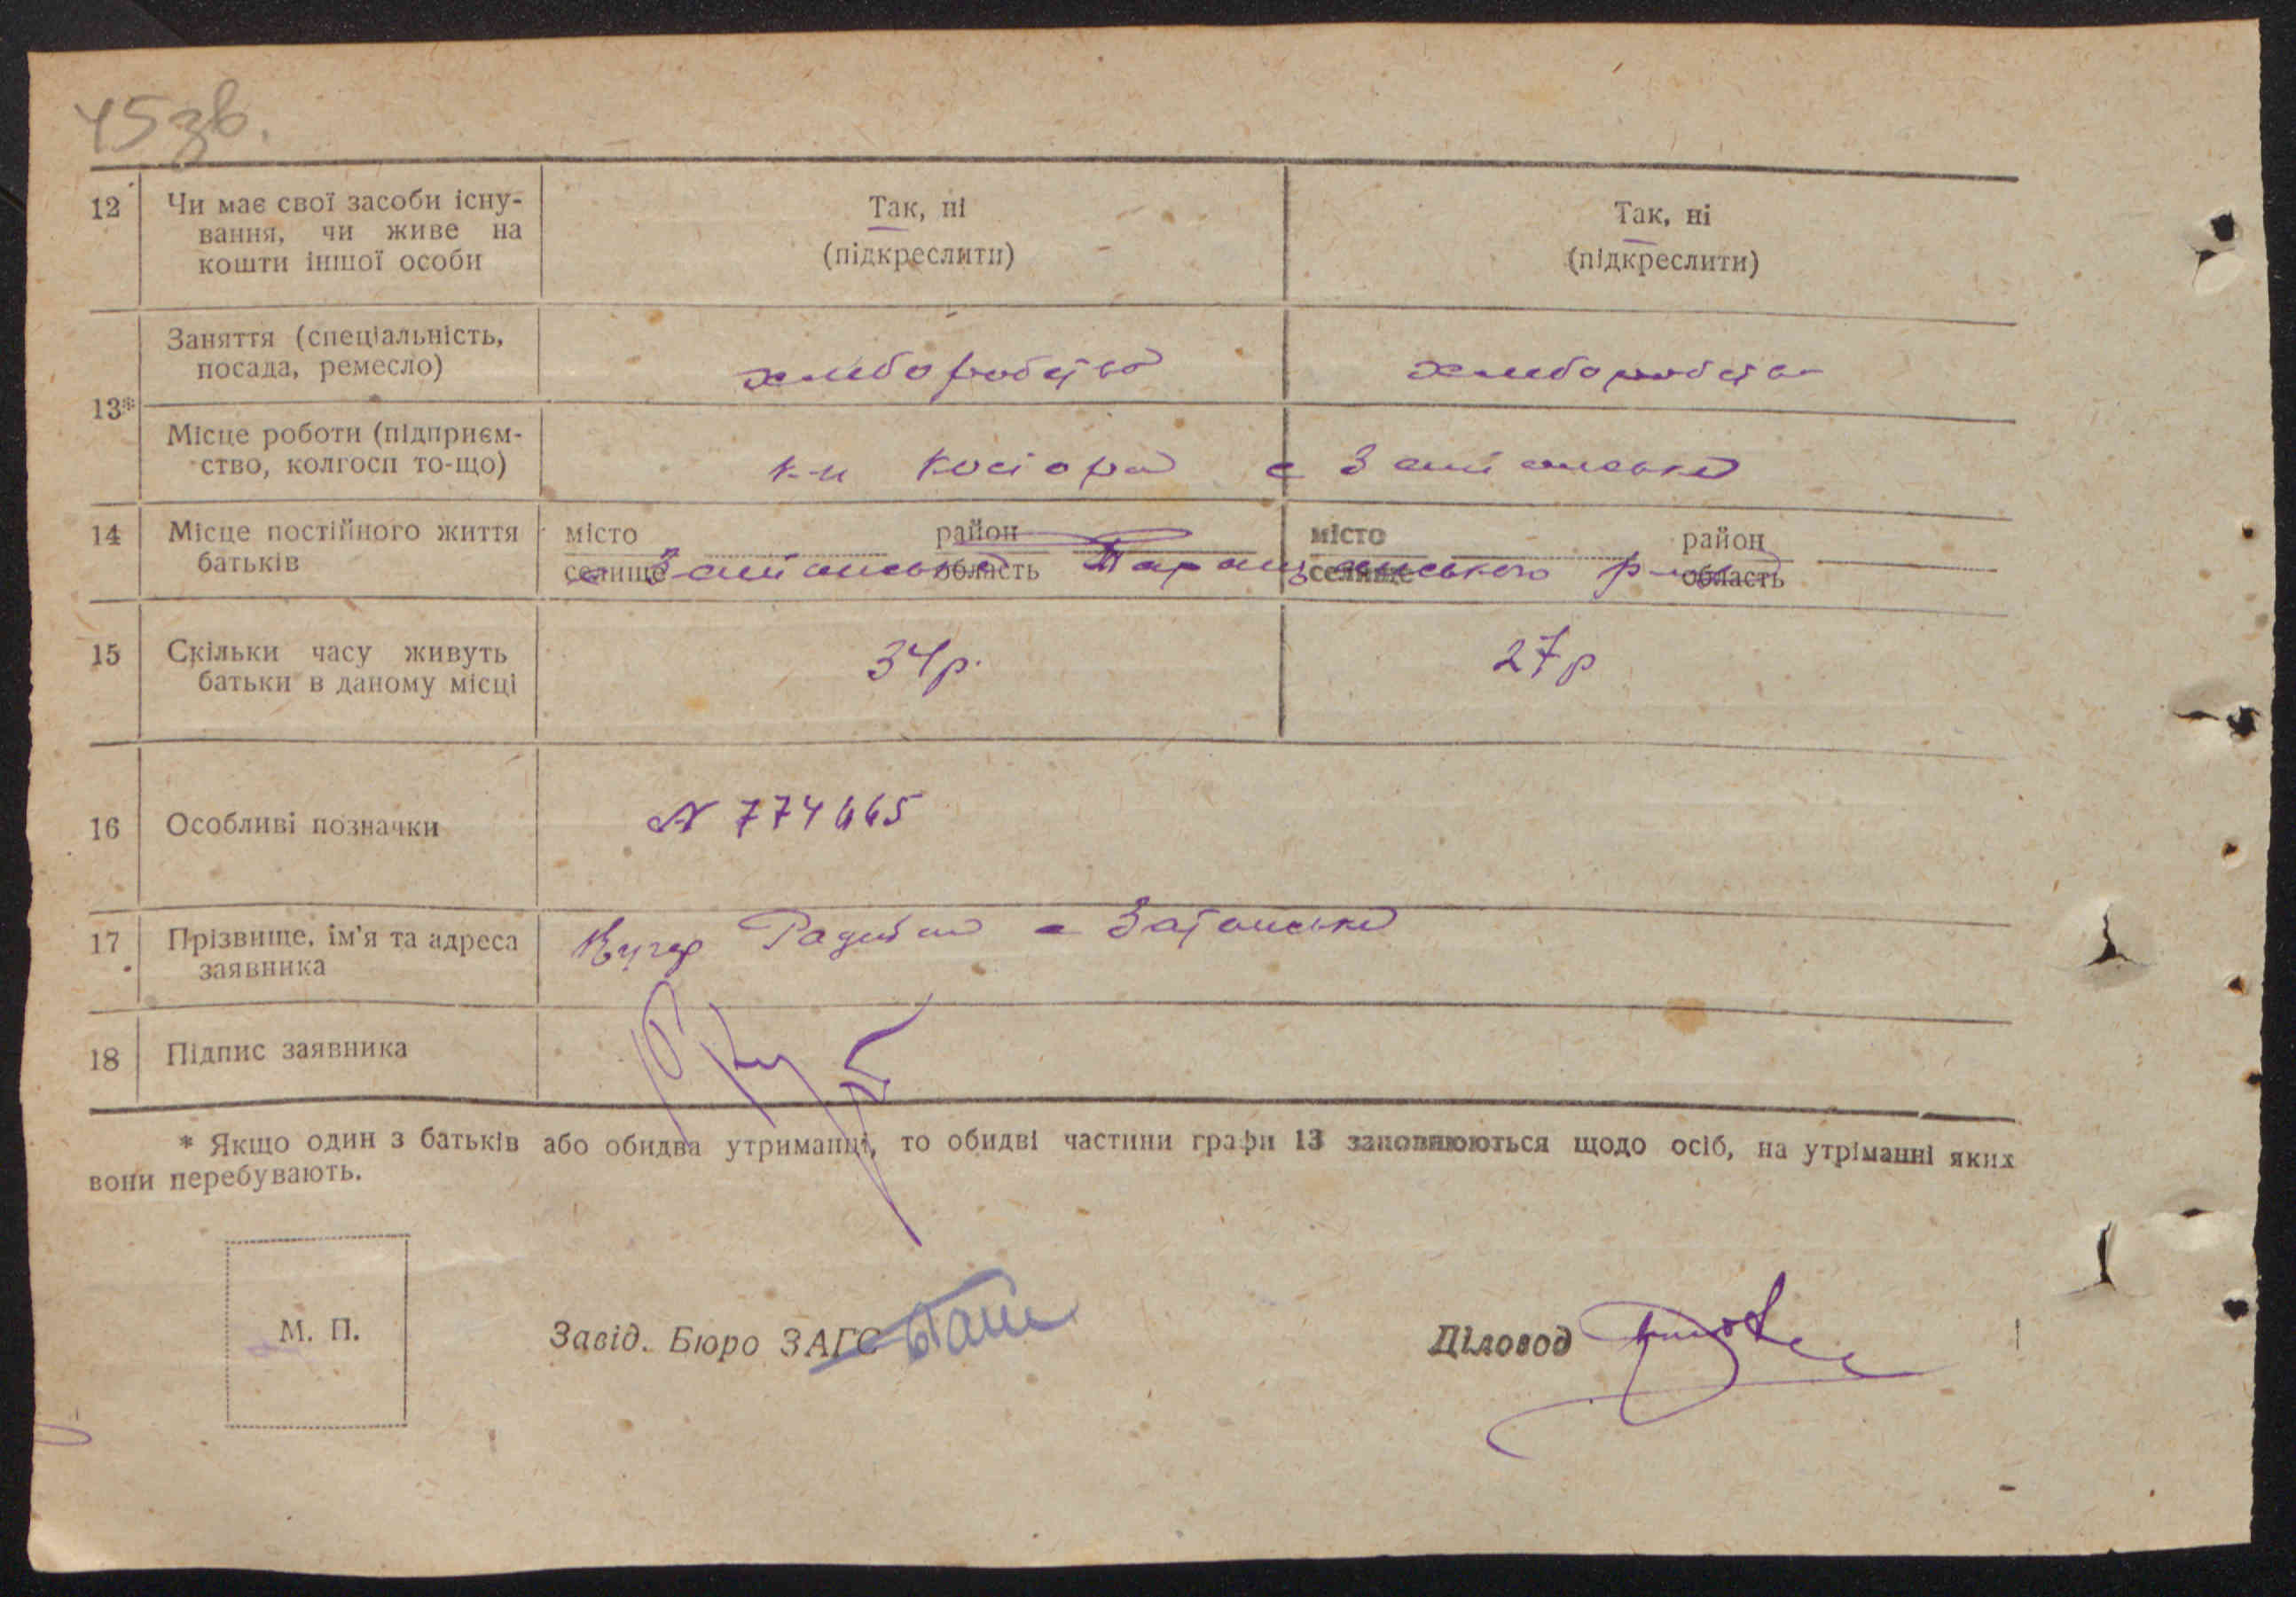 45 зв.
12 Чи має свої засоби існу-
вання, чи живе на
кошти іншої особи
Так, ні
(підкреслити)
Так, ні
(підкреслити)
13*
Заняття (спеціальність,
посада, ремесло)
хлиборобство
хлиборобство
Місце роботи (підприєм-
ство, колгосп то-що)
Косіора с
14 Місце постійного життя
батьків
місто район
селище область
місто район
селище область
Таращанського р-
15 Скільки часу живуть
батьки в даному місці
34р.
27р
16 Особливі позначки
N 774665
17 Прізвище, ім'я та адреса
заявника
18 Підпис заявника
* Якщо один з батьків або обидва утриманці, то обидві частини графи 13 заповнюються щодо осіб, на утріманні яких
вони перебувають.
М. П.
Завід. Бюро ЗАГС
Діловод